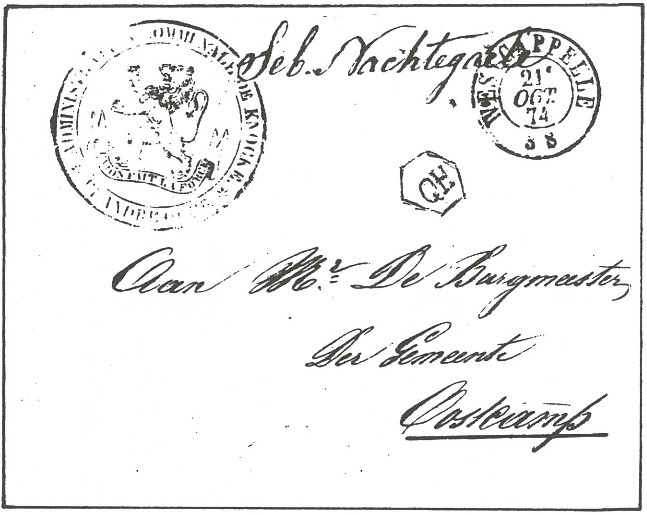 ADMINISTRATION COMMUNALE DE KNOCKE
L'UNION FAIT LA FORCE
Seb. Nachtegaele
WESTCAPPELLE
21
OCT
74
3 S
QH
Aan Mr De Burgmeester,
Der Gemeente
Oostkamp